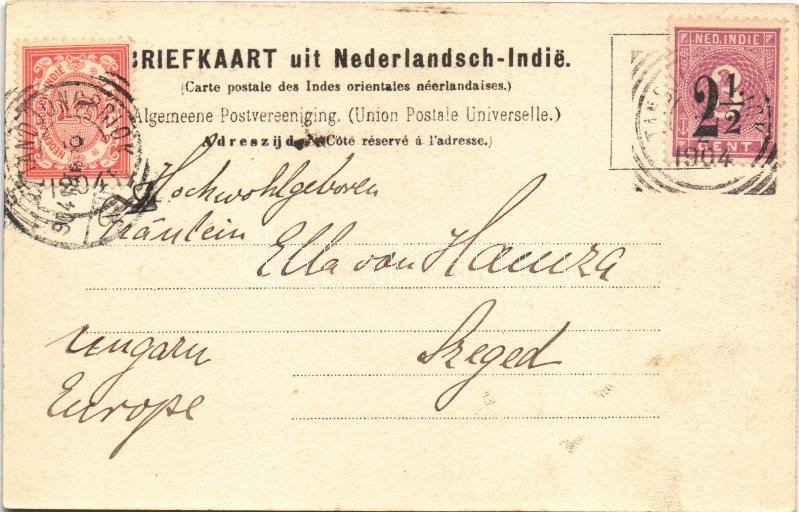 BRIEFKAART uit Nederlandsch-Indië.
(Carte postale des Indes orientales néerlandaises.)
Algemeene Postvereeniging. (Union Postale Universelle.)
Adreszijde. (Côté réservé à l'adresse.)
NED. INDIE
2 1/2
CENT
1904
1904
Hochwohlgeboren
Fräulein Ella von Hamza
Ungarn Szeged
Europe